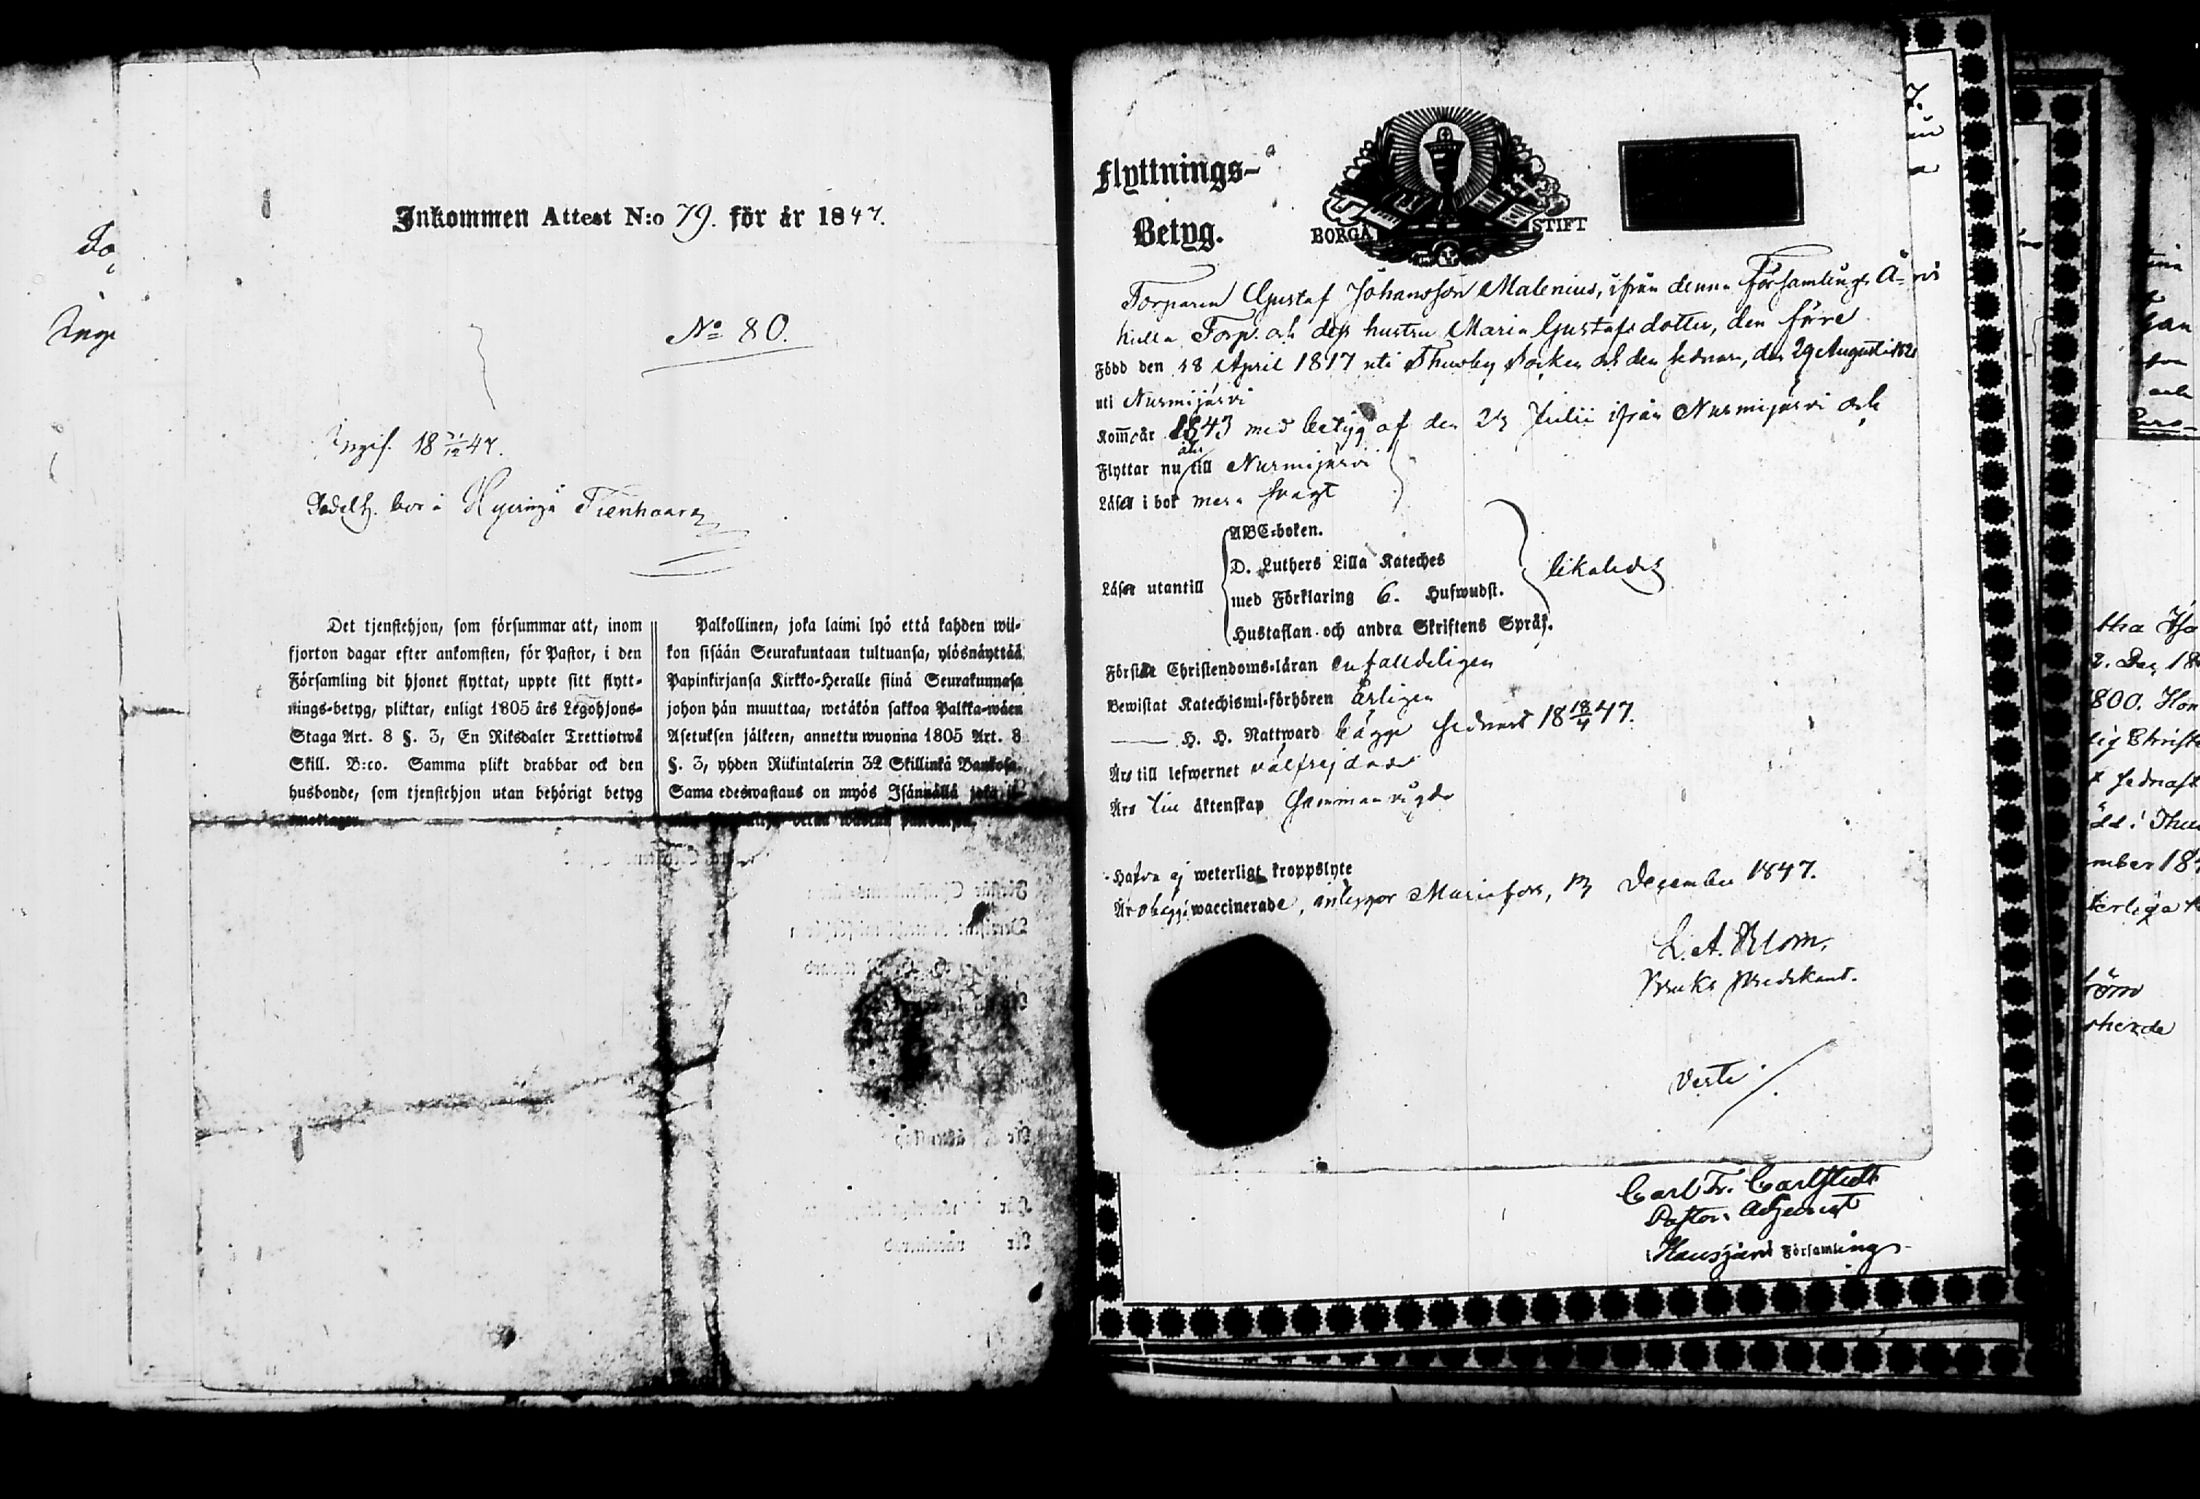 Inkommen Attest N:o 79. för år 1847.
No 80.
Ingif. 18 21/12 47.
bor i Hyvinge Tienhaara
Det tjenstehjon, som försummar att, inom
fjorton dagar efter ankomsten, för Pastor, i den
Församling dit hjonet flyttat, uppte sitt flytt-
nings-betyg, pliktar, enligt 1805 års Legohjons-
Staga Art. 8 §. 3, En Riksdaler Trettiotwå
Skill. B:co. Samma plikt drabbar ock den
husbonde, som tjenstehjon utan behörigt betyg
emottager.
Palkollinen, joka laimi lyö että kahden wii-
kon sisään Seurakuntaan tultuansa, ylösnäyttää
Papinkirjansa Kirkko-Heralle siinä Seurakunnasa
johon hän muuttaa, wetäkön sakkoa Palkka-wäen
Asetuksen jälkeen, annettu wuonna 1805 Art. 8
§. 3, yhden Riikintalerin 32 Skillinkä Bankosa.
Sama edeswastaus on myös Isännällä joka
Flyttnings-
Betyg.
BORGÅ STIFT
Torparen Gustaf Johansson Malenius, ifrån denna Församlings
kulla Torp och dess hustru Maria Gustafsdotter, den förre
Född den 18 April 1817 uti Thusby Socken och den sednare, den 29 Augusti
uti Nurmijärvi
Kom år 1843 med betyg af den 24 Julii ifrån Nurmijärvi och
Flyttar nu åter till Nurmijärvi
Läser i bok mera svagt
ABC-boken.
D. Luthers Lilla Kateches
Läser utantill
med Förklaring 6. Hufwudst.
likaledes
Hustaflan och andra Skriftens Språk.
Förstår Christendoms-läran enfalldeligen
Bewistat Katechismi-förhören årligen
H. H. Nattward begge sednast 18 18/4 47.
Äro till lefwernet välfrejdade
Äro till äktenskap sammanvigde
Hafva ej weterligt kroppslyte
Äro begge waccinerade, intygar Mariefors, 13 December 1847.
L. A. Blom,
Bruks Predikant.
Verte
Carl Fr. Carlstedt
Pastors Adjunct
i Hausjärvi Församling